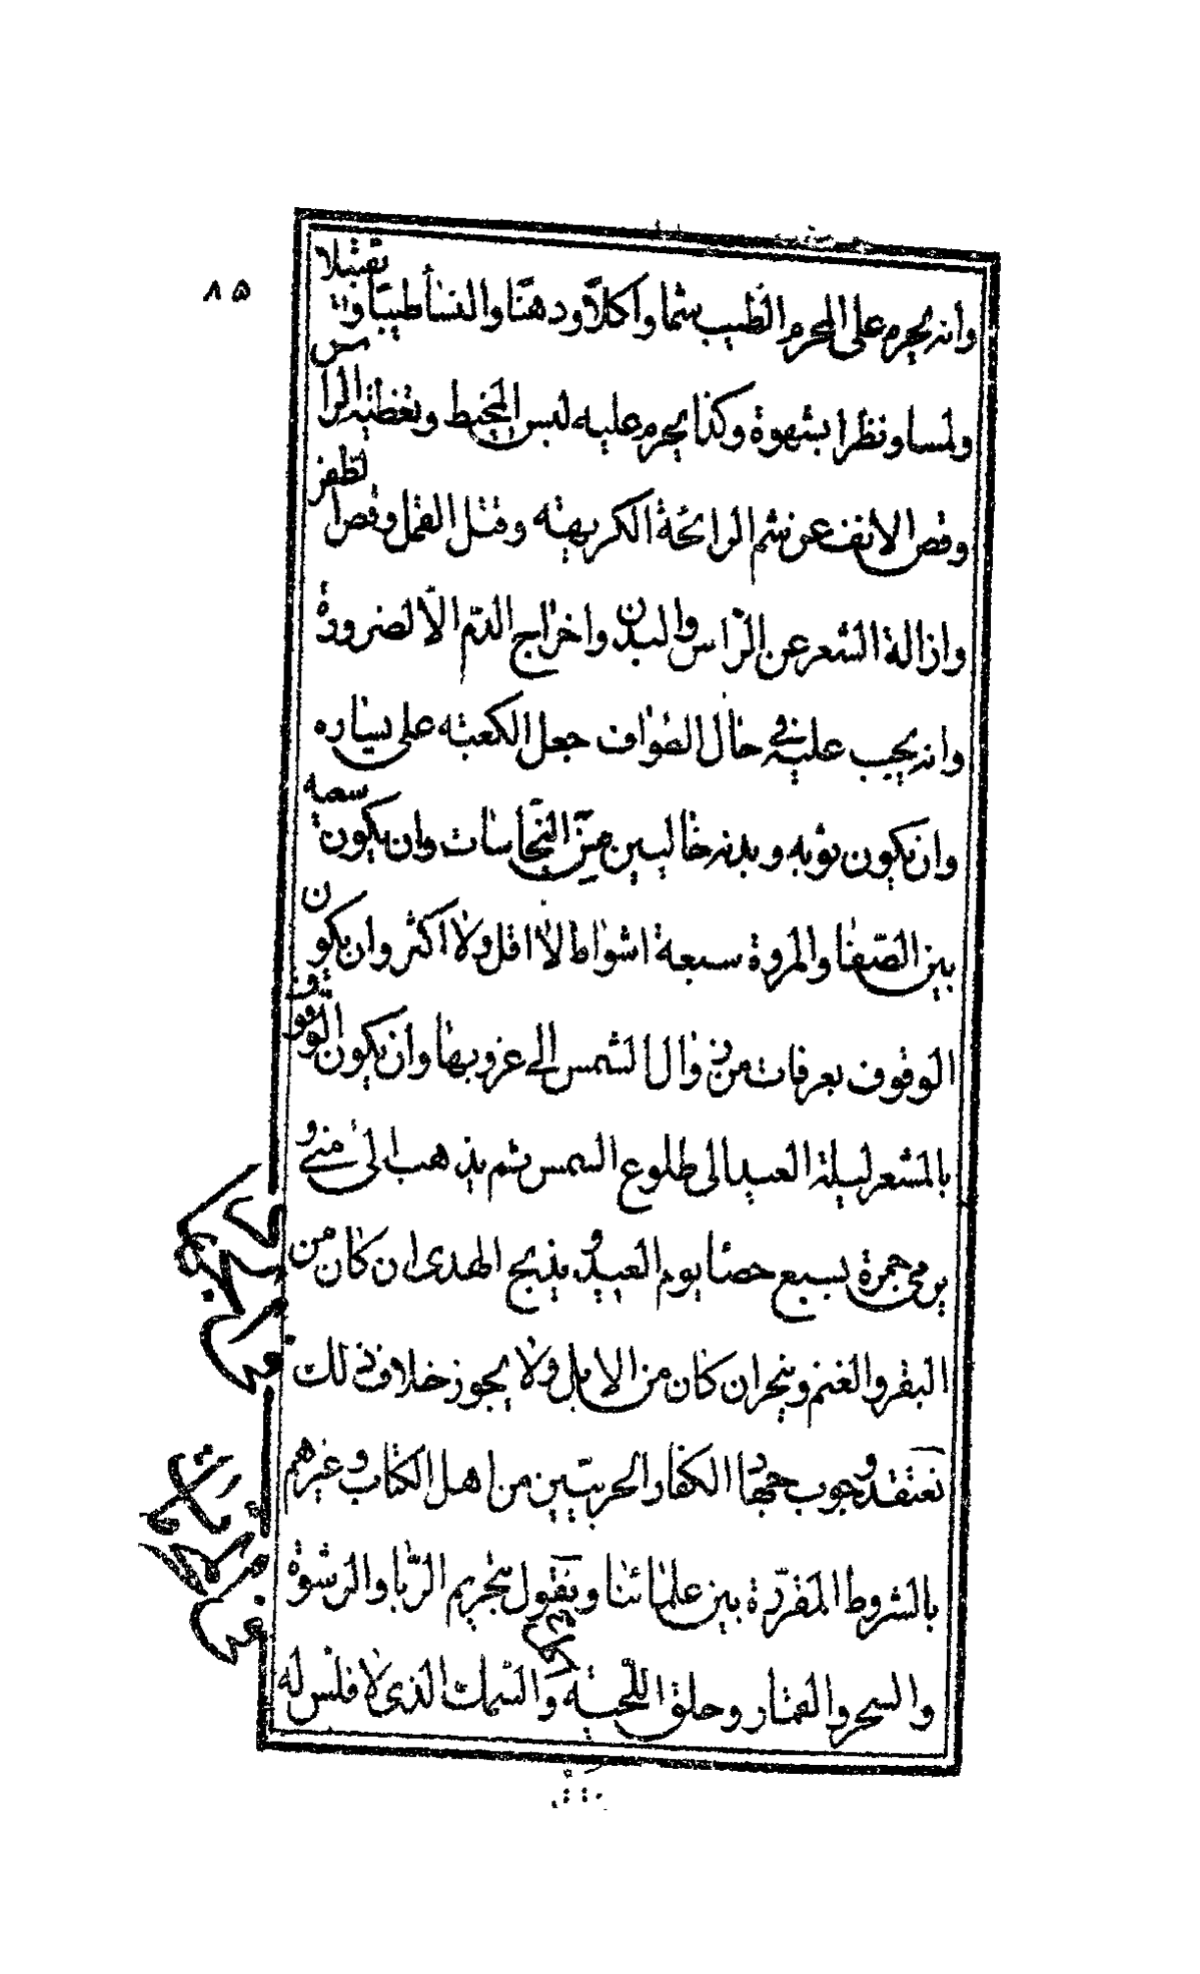 ٨٥
وانه يحرم على المحرم الطيب شما واكلا ودهنا والنسأ طيبا وتقبيلا
ولمسا ونظرا بشهوة وكذا يحرم عليه لبس المخيط وتغطية الراس
وقص الانف عن شم الرائحة الكريهة وقتل القمل وقص الظفر
وازالة الشعر عن الرّاس والبدن واخراج الدّم الّا لضرورة
وانه يجب عليه في حال الطواف جعل الكعبة على يساره
وان يكون ثوبه وبدنه خاليين من النّجاسات وان يكون سعيه
بين الصّفا والمروة سبعة اشواط لا اقل ولا اكثر وان يكون
الوقوف بعرفات من زوال الشمس الى غروبها وان يكون الوقوف
بالمشعر ليلة العيد الى طلوع الشمس ثم يذهب الى منى و
يرمي جمرة بسبع حصا يوم العيد ويذبح الهدى ان كان من
البقر والغنم وينحر ان كان من الابل ولا يجوز خلاف ذلك
نعتقد وجوب جهاد الكفار الحربيّين من اهل الكتاب وغيرهم
بالشروط المقررة بين علمائنا ونقول بتحريم الرّبا والرشوة
والسحر والقمار وحلق اللّحية والسّمك الذى لا فلس له